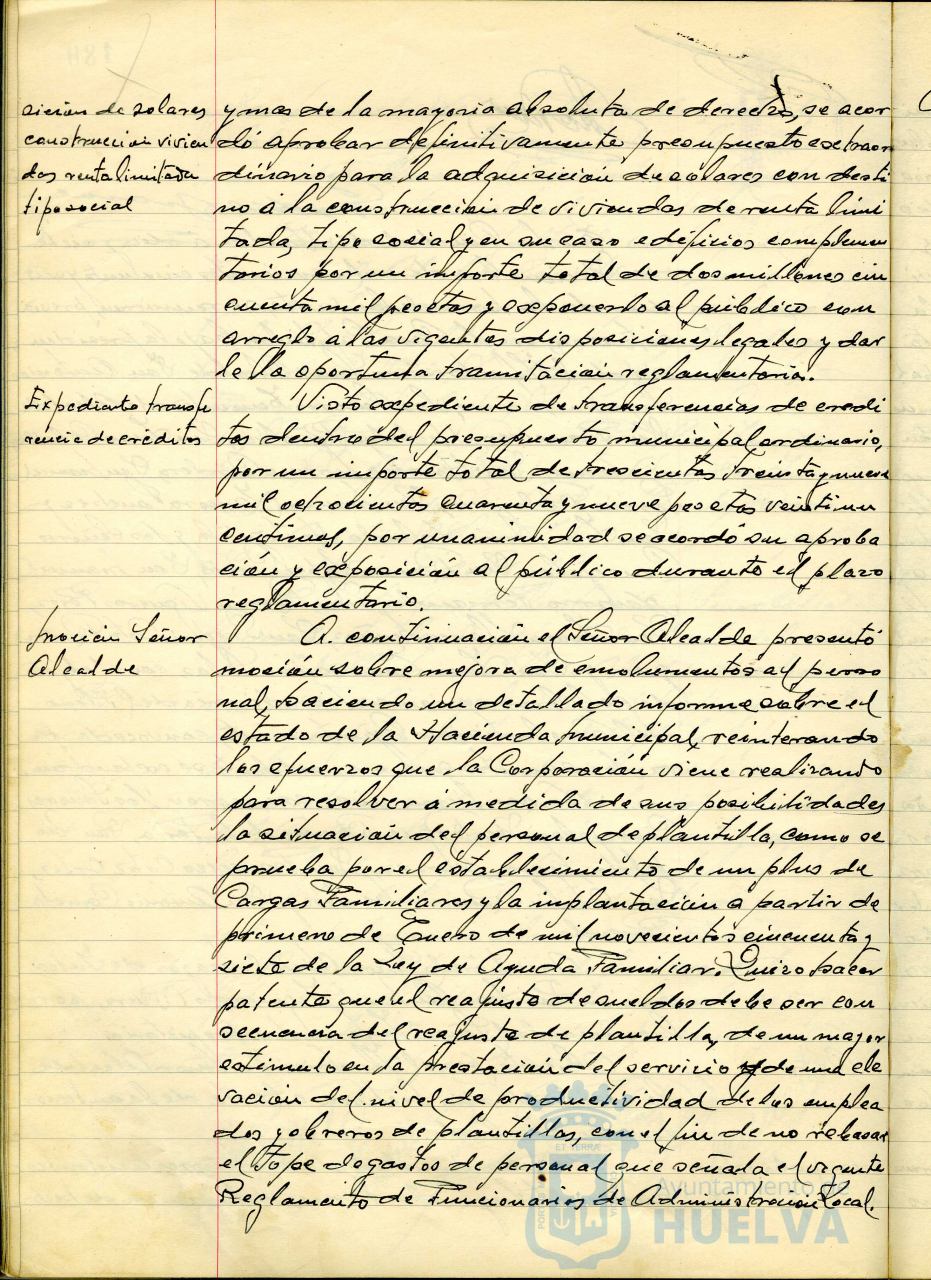 sición de solares
construccion vivien
das renta limitada
tipo social
y mas de la mayoria absoluta de derecho, se acor
dó aprobar definitivamente presupuesto extraor
dinario para la adquisición de solares con desti
no á la construcción de viviendas de renta limi
tada, tipo social y en su caso edificios complemen
tarios por un importe total de dos millones cin
cuenta mil pesetas y exponerlo al público con
arreglo á las vigentes disposiciones legales y dar
le la oportuna tramitación reglamentaria.
Expediente transfe
rencia de créditos
Visto expediente de transferencias de credi
tos dentro del presupuesto municipal ordinario,
por un importe total de trescientas treinta y nueve
mil ochocientas cuarenta y nueve pesetas veintiun
centimos, por unanimidad se acordó su aproba
ción y exposición al público durante el plazo
reglamentario.
Moción Señor
Alcalde
A continuación el Señor Alcalde presentó
moción sobre mejora de emolumentos al perso
nal, haciendo un detallado informe sobre el
estado de la Hacienda municipal, reinterando
los efuerzos que la Corporación viene realizando
para resolver á medida de sus posibilidades
la situación del personal de plantilla, como se
prueba por el establecimiento de un plus de
Cargas Familiares y la implantación a partir de
primero de Enero de mil novecientos cincuenta y
siete de la Ley de Ayuda Familiar. Quizo hacer
patente que el reajuste de sueldos debe ser con
secuencia del reajuste de plantilla, de un mayor
estimulo en la prestación del servicio y de una ele
vación del nivel de productividad de los emplea
dos y obreros de plantillas, con el fin de no rebasar
el tope de gastos de personal que señala el vigente
Reglamento de Funcionarios de Administración Local.
Ayuntamiento de
HUELVA